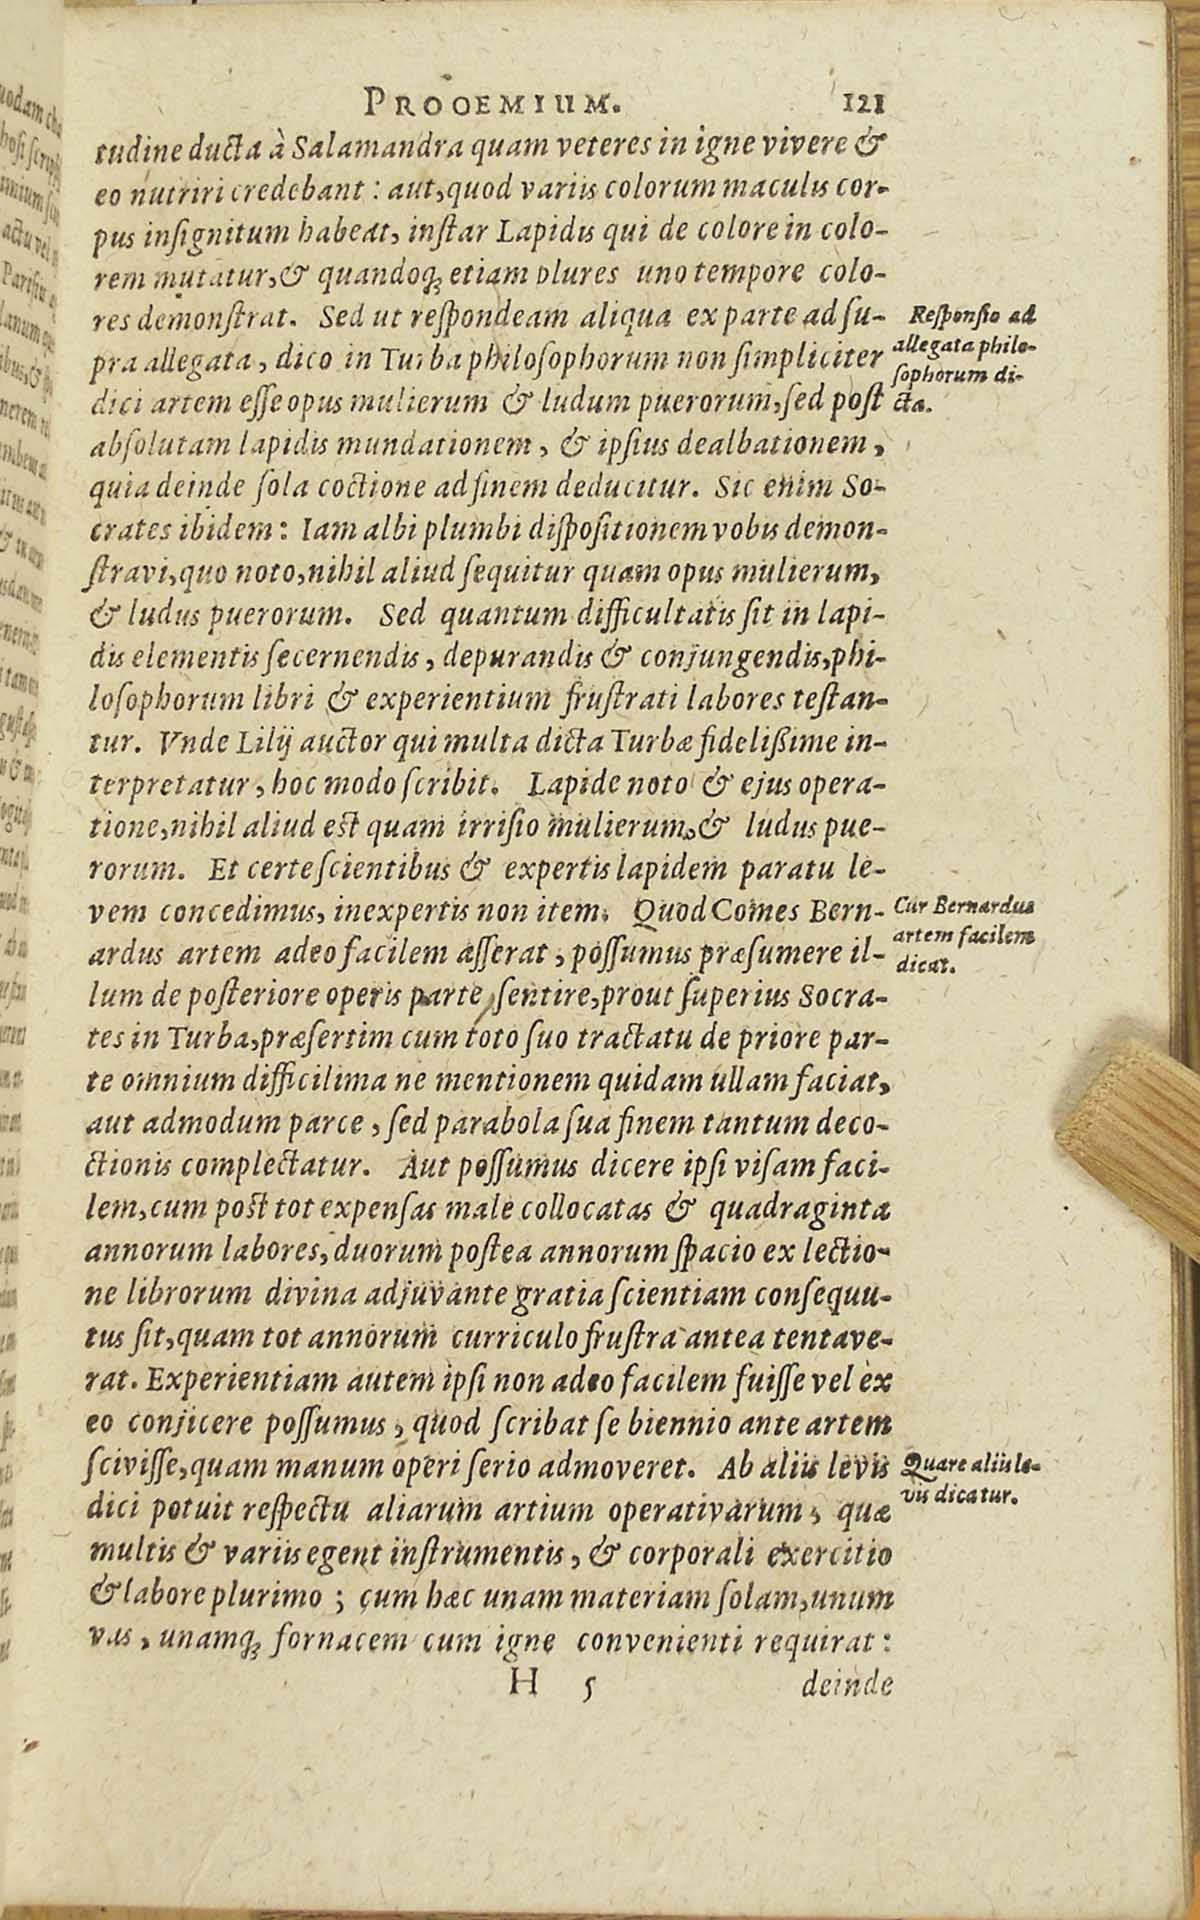 PROOEMIUM. 121
tudine ducta à Salamandra quam veteres in igne vivere &
eo nutriri credebant : aut, quod variis colorum maculis cor-
pus inſignitum habeat, inſtar Lapidis qui de colore in colo-
rem mutatur, & quandoq; etiam plures uno tempore colo-
res demonſtrat. Sed ut reſpondeam aliqua ex parte ad ſu-
pra allegata, dico in Turba philoſophorum non ſimpliciter
dici artem eſſe opus mulierum & ludum puerorum, ſed poſt
abſolutam lapidis mundationem, & ipſius dealbationem,
quia deinde ſola coctione ad finem deducitur. Sic enim So-
crates ibidem : Iam albi plumbi diſpoſitionem vobis demon-
ſtravi, quo noto, nihil aliud ſequitur quam opus mulierum,
& ludus puerorum. Sed quantum difficultatis ſit in lapi-
dis elementis ſecernendis, depurandis & conjungendis, phi-
loſophorum libri & experientium fruſtrati labores teſtan-
tur. Vnde Lilij auctor qui multa dicta Turbæ fidelißime in-
terpretatur, hoc modo ſcribit. Lapide noto & ejus opera-
tione, nihil aliud eſt quam irriſio mulierum, & ludus pue-
rorum. Et certe ſcientibus & expertis lapidem paratu le-
vem concedimus, inexpertis non item. Quod Comes Bern-
ardus artem adeo facilem aſſerat, poſſumus præſumere il-
lum de poſteriore operis parte ſentire, prout ſuperius Socra-
tes in Turba, præſertim cum toto ſuo tractatu de priore par-
te omnium difficilima ne mentionem quidam ullam faciat,
aut admodum parce, ſed parabola ſua finem tantum deco-
ctionis complectatur. Aut poſſumus dicere ipſi viſam faci-
lem, cum poſt tot expenſas male collocatas & quadraginta
annorum labores, duorum poſtea annorum ſpacio ex lectio-
ne librorum divina adjuvante gratia ſcientiam conſequu-
tus ſit, quam tot annorum curriculo fruſtra antea tentave-
rat. Experientiam autem ipſi non adeo facilem fuiſſe vel ex
eo conjicere poſſumus, quod ſcribat ſe biennio ante artem
ſciviſſe, quam manum operi ſerio admoveret. Ab aliis levis
dici potuit reſpectu aliarum artium operativarum, quæ
multis & variis egent inſtrumentis, & corporali exercitio
& labore plurimo ; cum hæc unam materiam ſolam, unum
vas, unamq; fornacem cum igne convenienti requirat :
H 5 deinde
Reſponſio ad
allegata philo-
ſophorum di-
cta.
Cur Bernardus
artem facilem
dicat.
Quare aliis le-
vis dicatur.